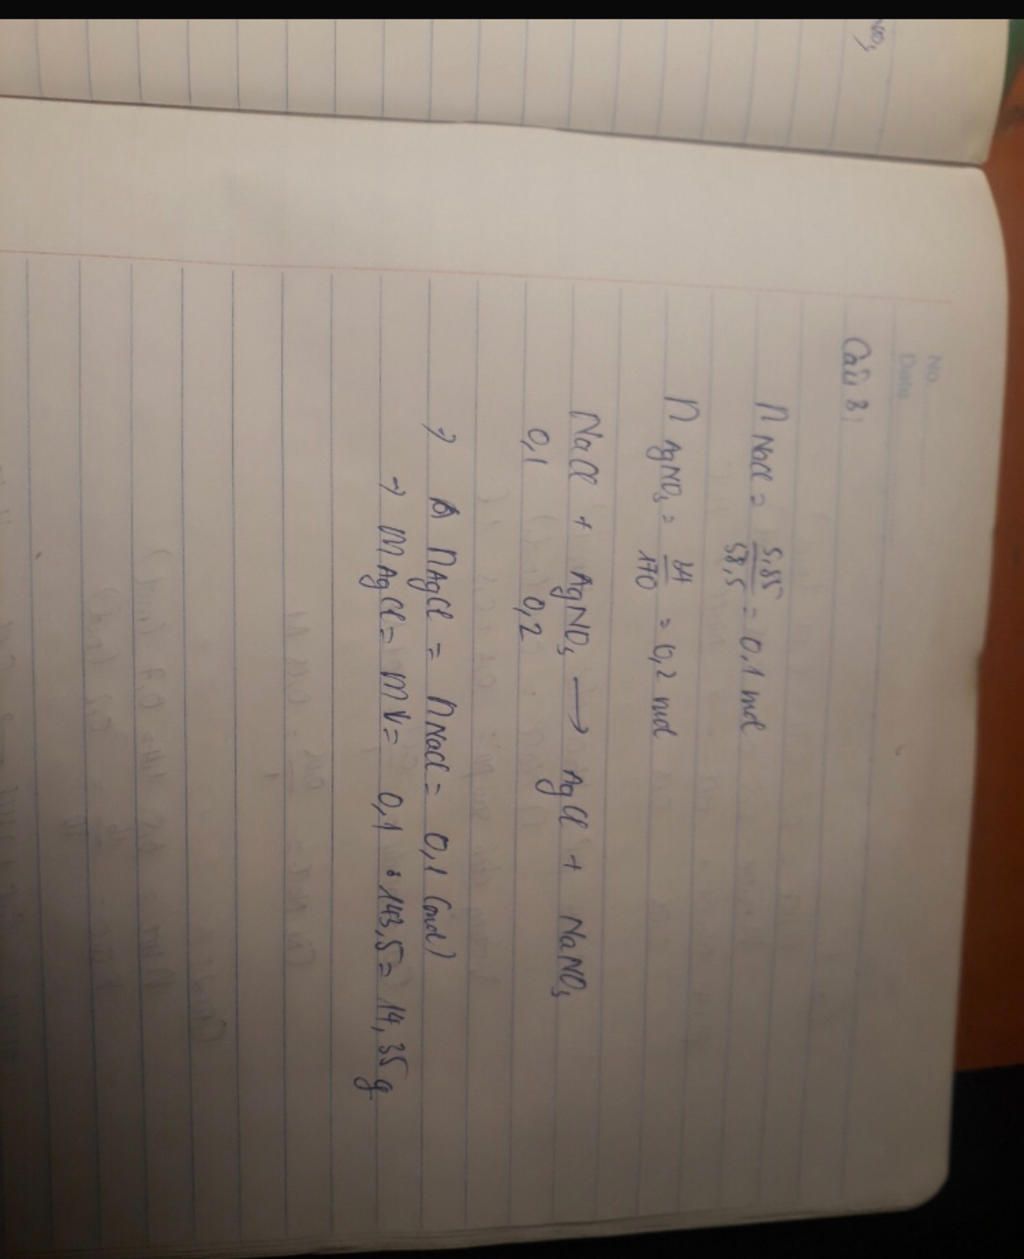 NO₃
No.
Date
Câu 8:
n NaCl = 5,85/58,5 = 0,1 mol
n AgNO₃ = 34/170 = 0,2 mol
NaCl + AgNO₃ → AgCl + NaNO₃
0,1 0,2
→ n AgCl = n NaCl = 0,1 (mol)
→ m AgCl = m↓ = 0,1 . 143,5 = 14,35 g